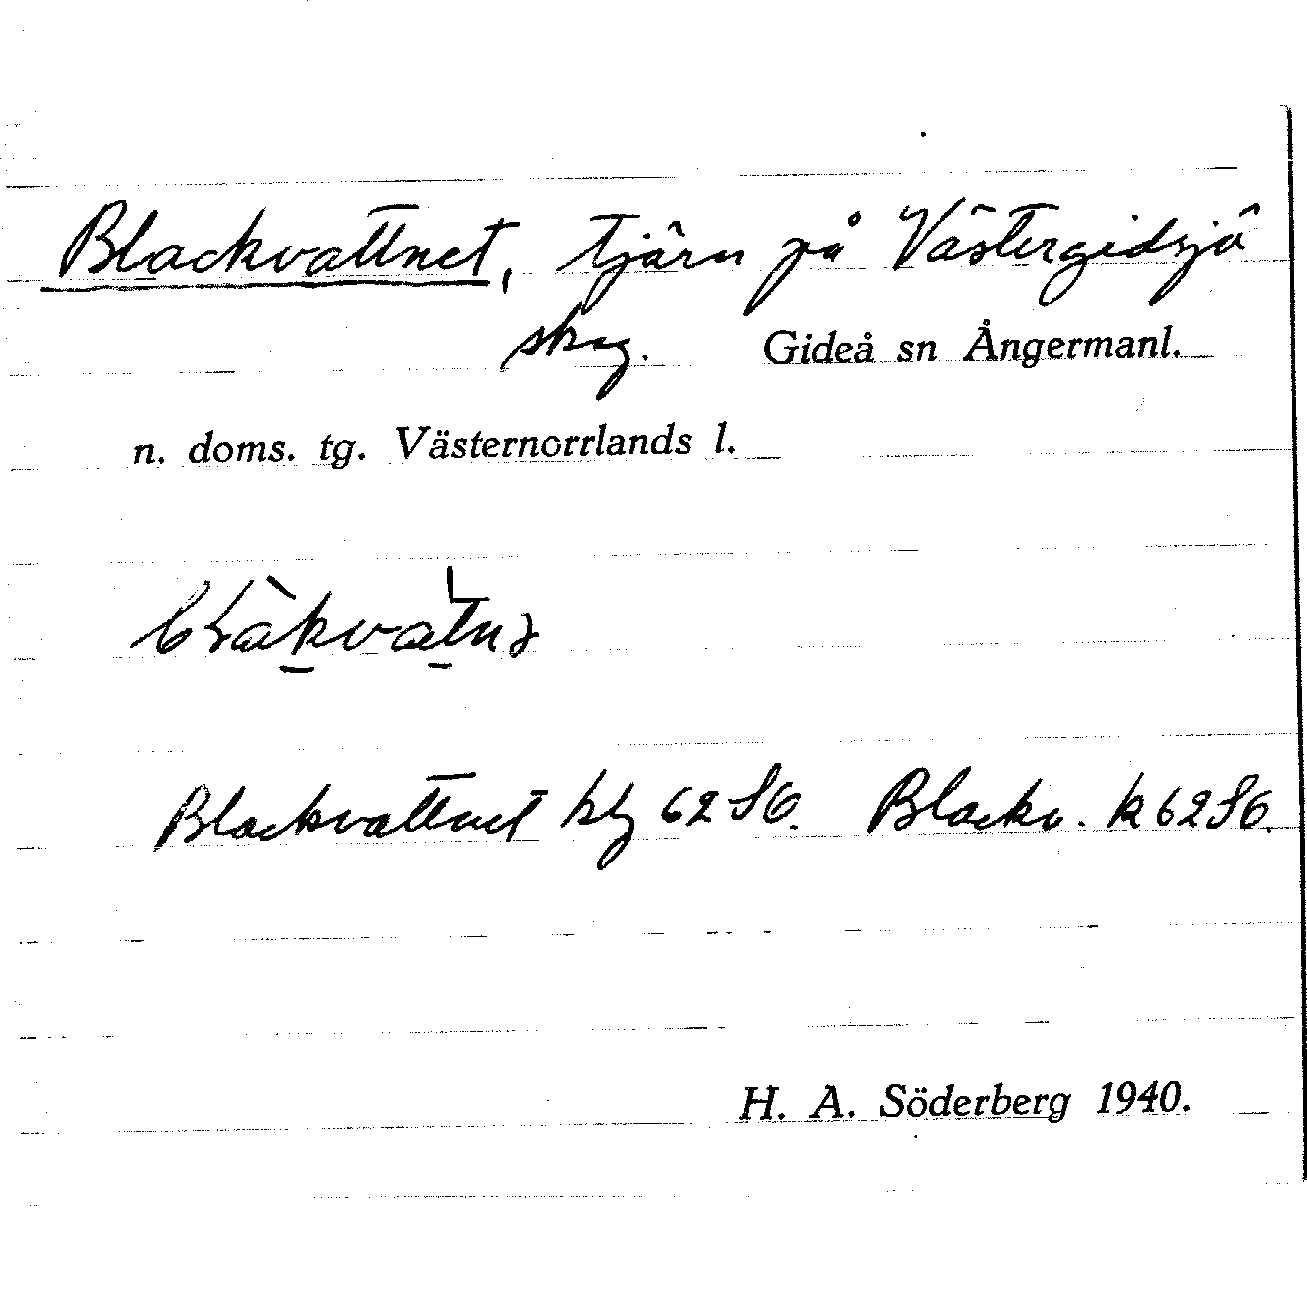 Blackvattnet, tjärn på Västergidsjö
skog. Gideå sn Ångermanl.
n. doms. tg. Västernorrlands l.
Blackvattnet 62 S6. Blackv. k 62 S6.
H. A. Söderberg 1940.